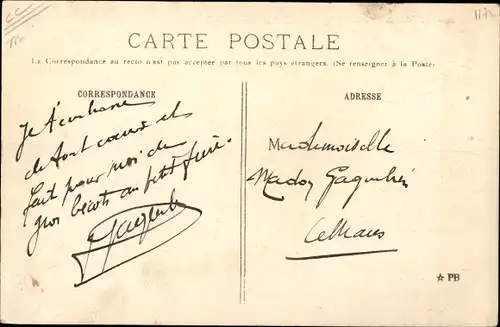 CARTE POSTALE
La Correspondance au recto n'est pas acceptée par tous les pays étrangers. (Se renseigner à la Poste)
CORRESPONDANCE
ADRESSE
Je t'embrasse
de tout coeur et
fait pour moi de
gros bécots au petit frère.
Mademoiselle
Madon
Le Mans
☆ PB